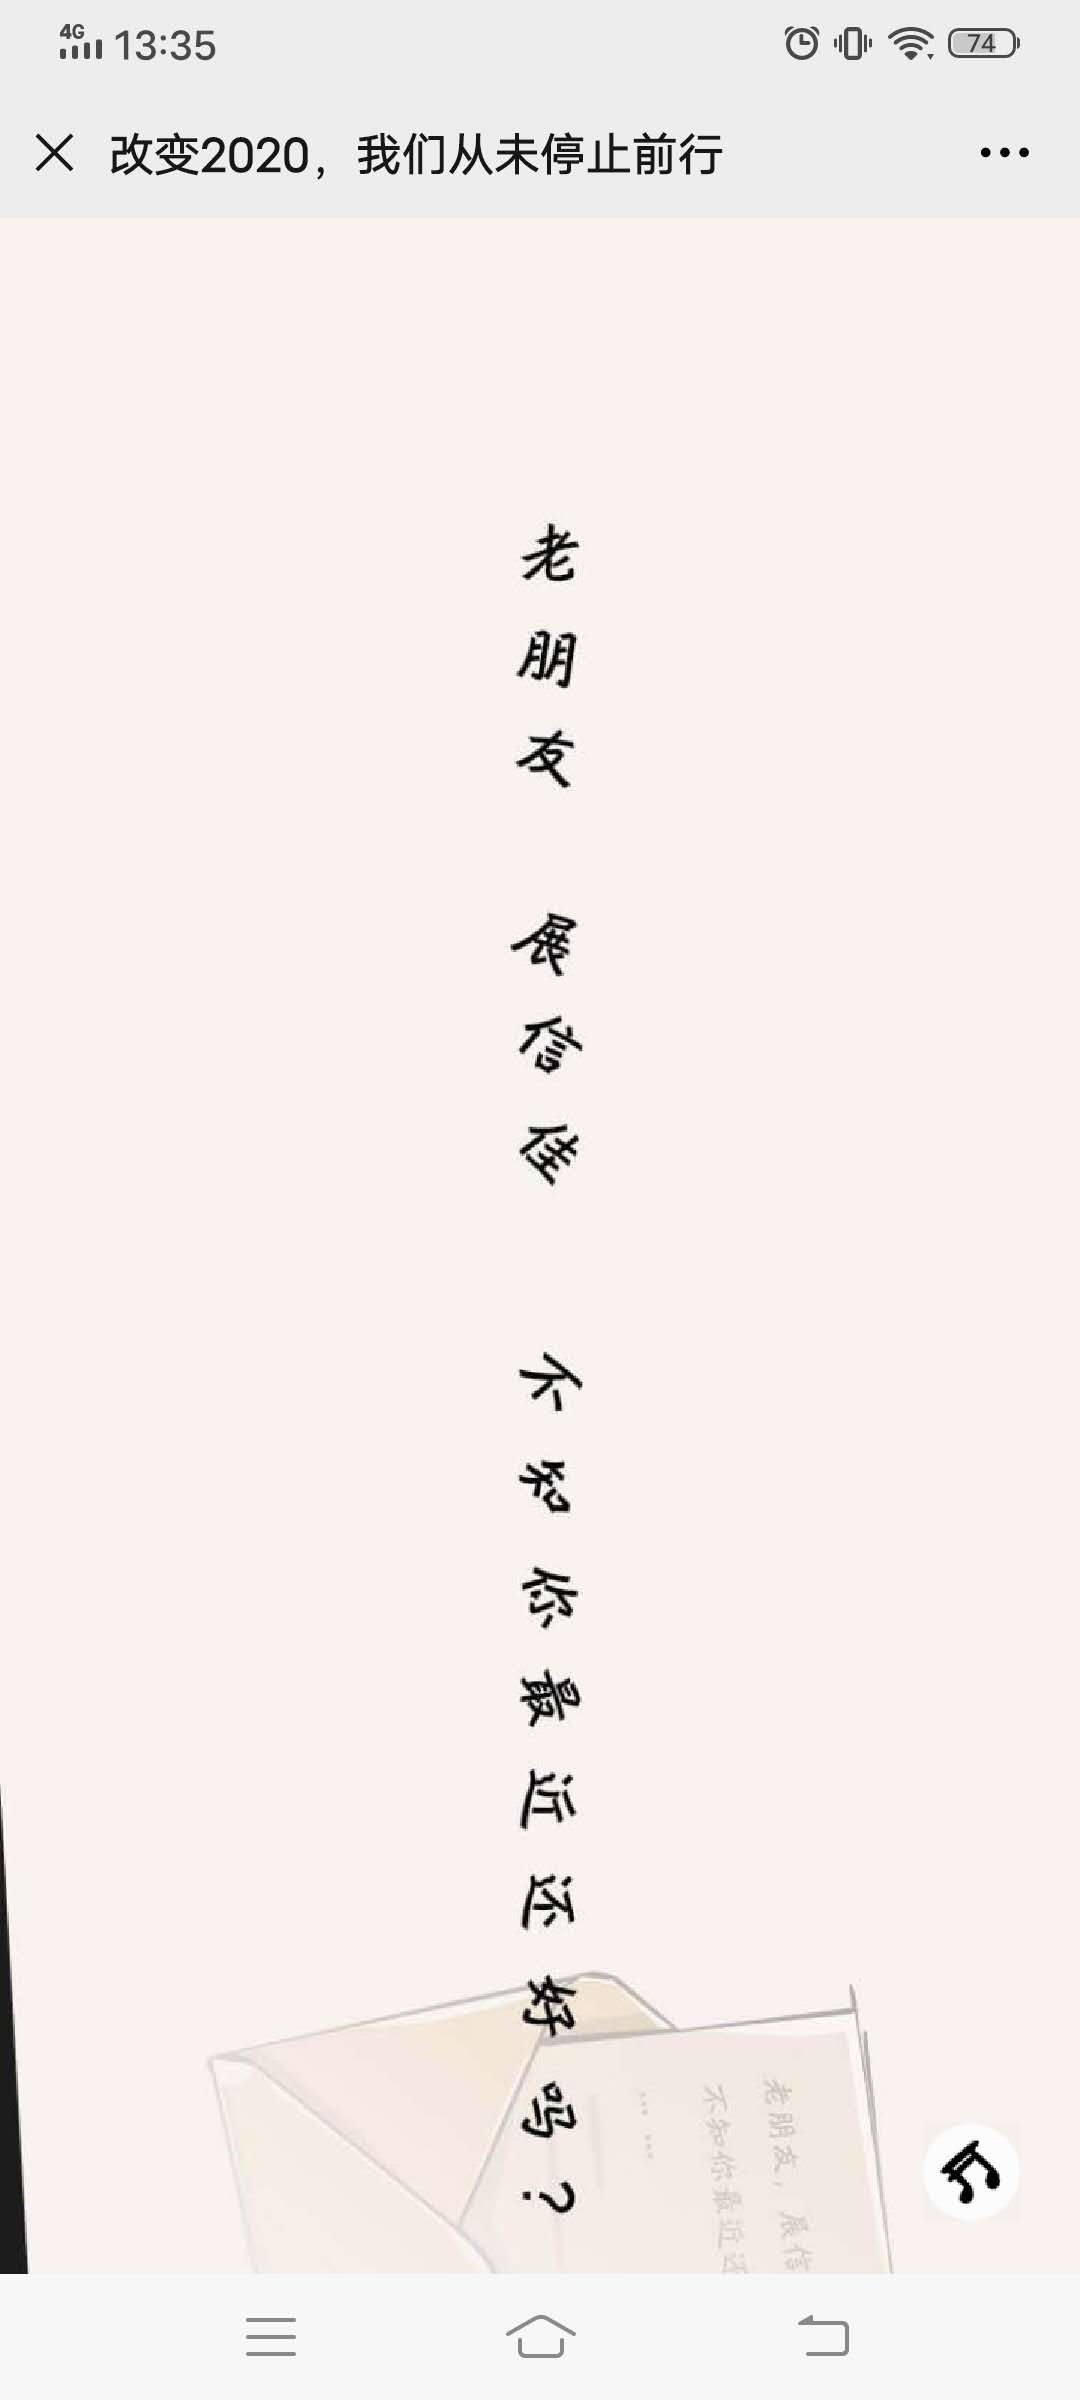 4G 13:35 74
改变2020，我们从未停止前行
老朋友 展信佳 不知你最近还好吗？
老朋友，展信
不知你最近还
... ...